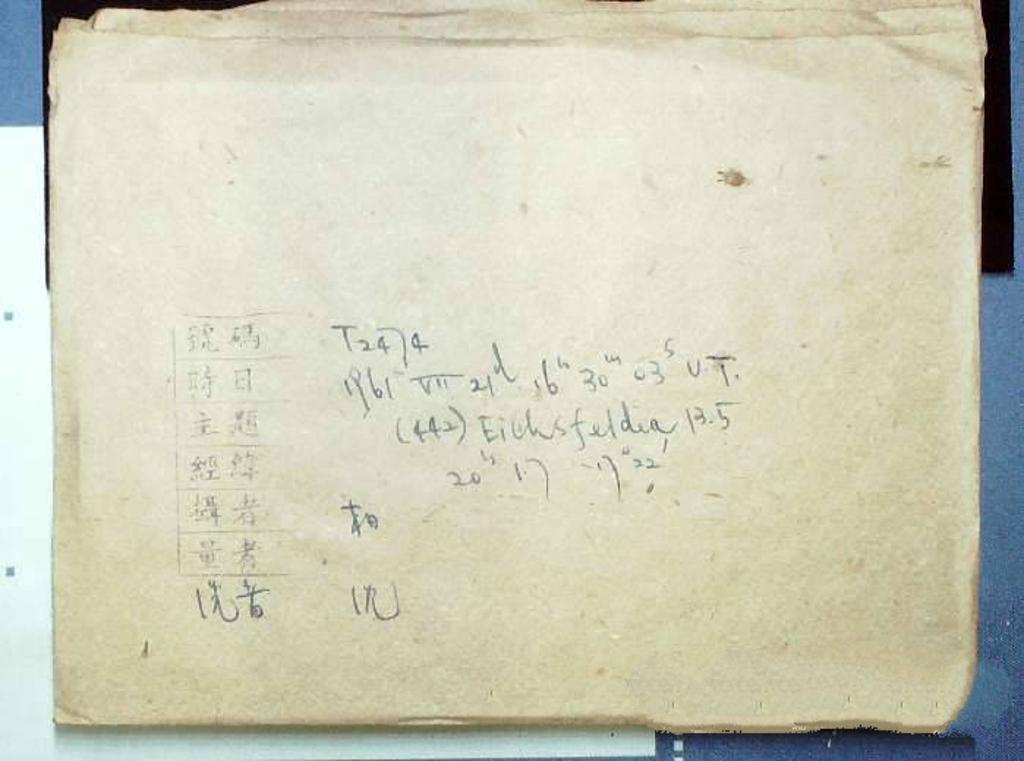 號碼 T2474
時日 1961 VII 21d 16h 30m 03s U.T.
主題 (442) Eichsfeldia, 13.5
經緯 20h 1.7 -17°22'
攝者
量者
洗者 沈